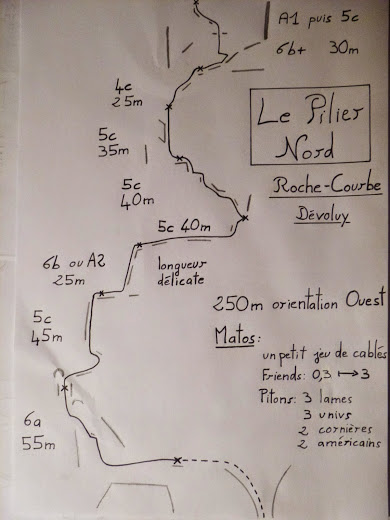 A1 puis 5c
6b+ 30m
4c
25m
Le Pilier
Nord
5c
35m
5c
40m
Roche-Courbe
Dévoluy
5c 40m
longueur
délicate
6b ou A2
25m
5c
45m
250m orientation Ouest
Matos:
un petit jeu de cablés
Friends: 0,3 ↦ 3
Pitons: 3 lames
3 univs
2 cornières
2 américains
6a
55m